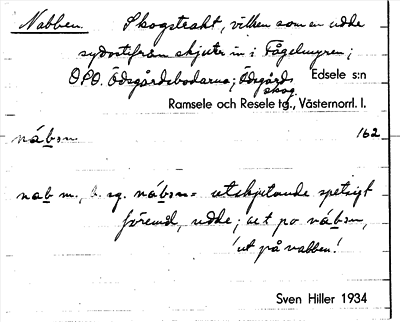 Nabben. Skogstrakt, vilken som en udde
sydostifrån skjuter in i Fågelmyren;
OSO. Ödsgårdsbodarna; Ödsgårds
skog Edsele s:n
Ramsele och Resele tg., Västernorrl. l.
nábən 162
nab m., b. sg. nábən = utskjutande spetsigt
föremål, udde; ut po nábən,
'ut på nabben'.
Sven Hiller 1934